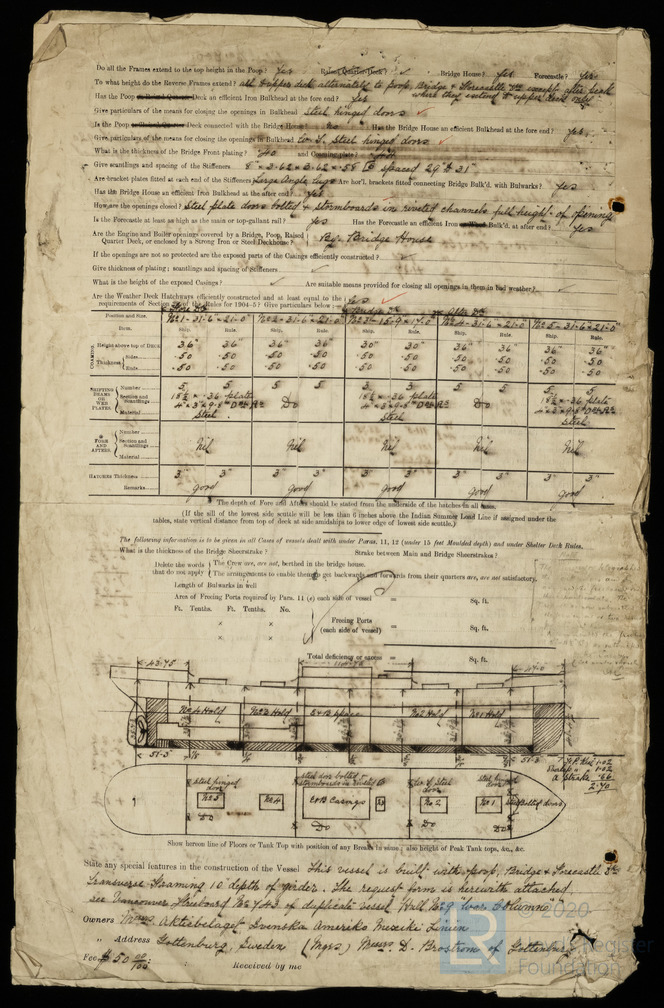 Do all the Frames extend to the top height in the Poop? Yes Raised Quarter Deck? ✓ Bridge House? Yes Forecastle? Yes
To what height do the Reverse Frames extend? all Upper deck alternately to poop, Bridge & Forecastle Dks except after peak
where they extend to upper deck only
Has the Poop or Raised Quarter Deck an efficient Iron Bulkhead at the fore end? Yes
Give particulars of the means for closing the openings in Bulkhead Steel hinged doors ✓
Is the Poop or Raised Quarter Deck connected with the Bridge House? No Has the Bridge House an efficient Bulkhead at the fore end? Yes
Give particulars of the means for closing the openings in Bulkhead W.T. Steel hinged doors ✓
What is the thickness of the Bridge Front plating? .40 and Coaming plate?
Give scantlings and spacing of the Stiffeners 8" × 3.62 × 3.62 × .58 spaced 29 to 31"
Are bracket plates fitted at each end of the Stiffeners? Large Angle lugs Are hor'l. brackets fitted connecting Bridge Bulk'd. with Bulwarks? Yes
Has the Bridge House an efficient Iron Bulkhead at the after end? Yes
How are the openings closed? Steel plate doors bolted & stormboards in riveted channels full height of opening
Is the Forecastle at least as high as the main or top-gallant rail? Yes Has the Forecastle an efficient Iron Bulk'd. at after end? Yes
Are the Engine and Boiler openings covered by a Bridge, Poop, Raised Quarter Deck, or enclosed by a Strong Iron or Steel Deckhouse? By Bridge House
If the openings are not so protected are the exposed parts of the Casings efficiently constructed? ✓
Give thickness of plating; scantlings and spacing of Stiffeners ✓
What is the height of the exposed Casings? ✓ Are suitable means provided for closing all openings in them in bad weather? ✓
Are the Weather Deck Hatchways efficiently constructed and at least equal to the requirements of Section of the Rules for 1904-5? Give particulars below:— Yes ✓
Fore Dk Bridge Dk After Dk
Position and Size. No 1 - 31.6 × 21.0 No 2 - 31.6 × 21.0 No 3 - 15.9 × 17.0 No 4 - 31.6 × 21.0 No 5 - 31.6 × 21.0
Item. Ship. Rule. Ship. Rule. Ship. Rule. Ship. Rule. Ship. Rule.
COAMING Height above top of Deck 36" 36" 36" 36" 30" 30" 36" 36" 36" 36"
Thickness Sides .50 .50 .50 .50 .50 .50 .50 .50 .50 .50
Ends .50 .50 .50 .50 .50 .50 .50 .50 .50 .50
SHIFTING BEAMS OR WEB PLATES. Number 5 5 5 5 3 3 5 5 5 5
Section and Scantlings Do Do
Material Steel Steel Steel
FORE AND AFTERS. Number
Section and Scantlings Nil Nil Nil Nil Nil
Material
HATCHES Thickness 3" 3" 3" 3" 3" 3" 3" 3" 3" 3"
Remarks good good good good good
The depth of Fore and Afters should be stated from the underside of the hatches in all cases.
(If the sill of the lowest side scuttle will be less than 6 inches above the Indian Summer Load Line if assigned under the
tables, state vertical distance from top of deck at side amidships to lower edge of lowest side scuttle.)
The following information is to be given in all Cases of vessels dealt with under Paras. 11, 12 (under 15 feet Moulded depth) and under Shelter Deck Rules.
What is the thickness of the Bridge Sheerstrake? Strake between Main and Bridge Sheerstrakes?
Delete the words that do not apply
The Crew are, are not, berthed in the bridge house.
The arrangements to enable them to get backwards and forwards from their quarters are, are not satisfactory.
Length of Bulwarks in well
Area of Freeing Ports required by Para. 11 (e) each side of vessel = Sq. ft.
Ft. Tenths. Ft. Tenths. No.
× ×
× ×
Freeing Ports (each side of vessel) = Sq. ft.
Total deficiency or excess = Sq. ft.
43.75 47.0
No 4 Hold No 3 Hold E & B Space No 2 Hold No 1 Hold
51.3 51.3
1.02
1.02
.66
2.70
steel hinged door steel door bolted & stormboards in riveted W.T. Steel door
No 5 No 4 E & B Casings No 2 No 1
Do Do Do Do
Show hereon line of Floors or Tank Top with position of any Breaks in same; also height of Peak Tank tops, &c., &c.
State any special features in the construction of the Vessel This vessel is built with poop, Bridge & Forecastle Dks
Transverse Framing 10" depth of girder. The request form is herewith attached.
see Vancouver Freeboard No 743 of duplicate vessel Hull No 9 "War Column"
Owners Messrs Aktiebolaget Svenska Amerika Mexiko Linien
" Address Gottenburg, Sweden (Mgrs) Messrs D. Brostrom of Gottenburg
Fee $50 00/100 : Received by me
LR 2020
Lloyd's Register
Foundation